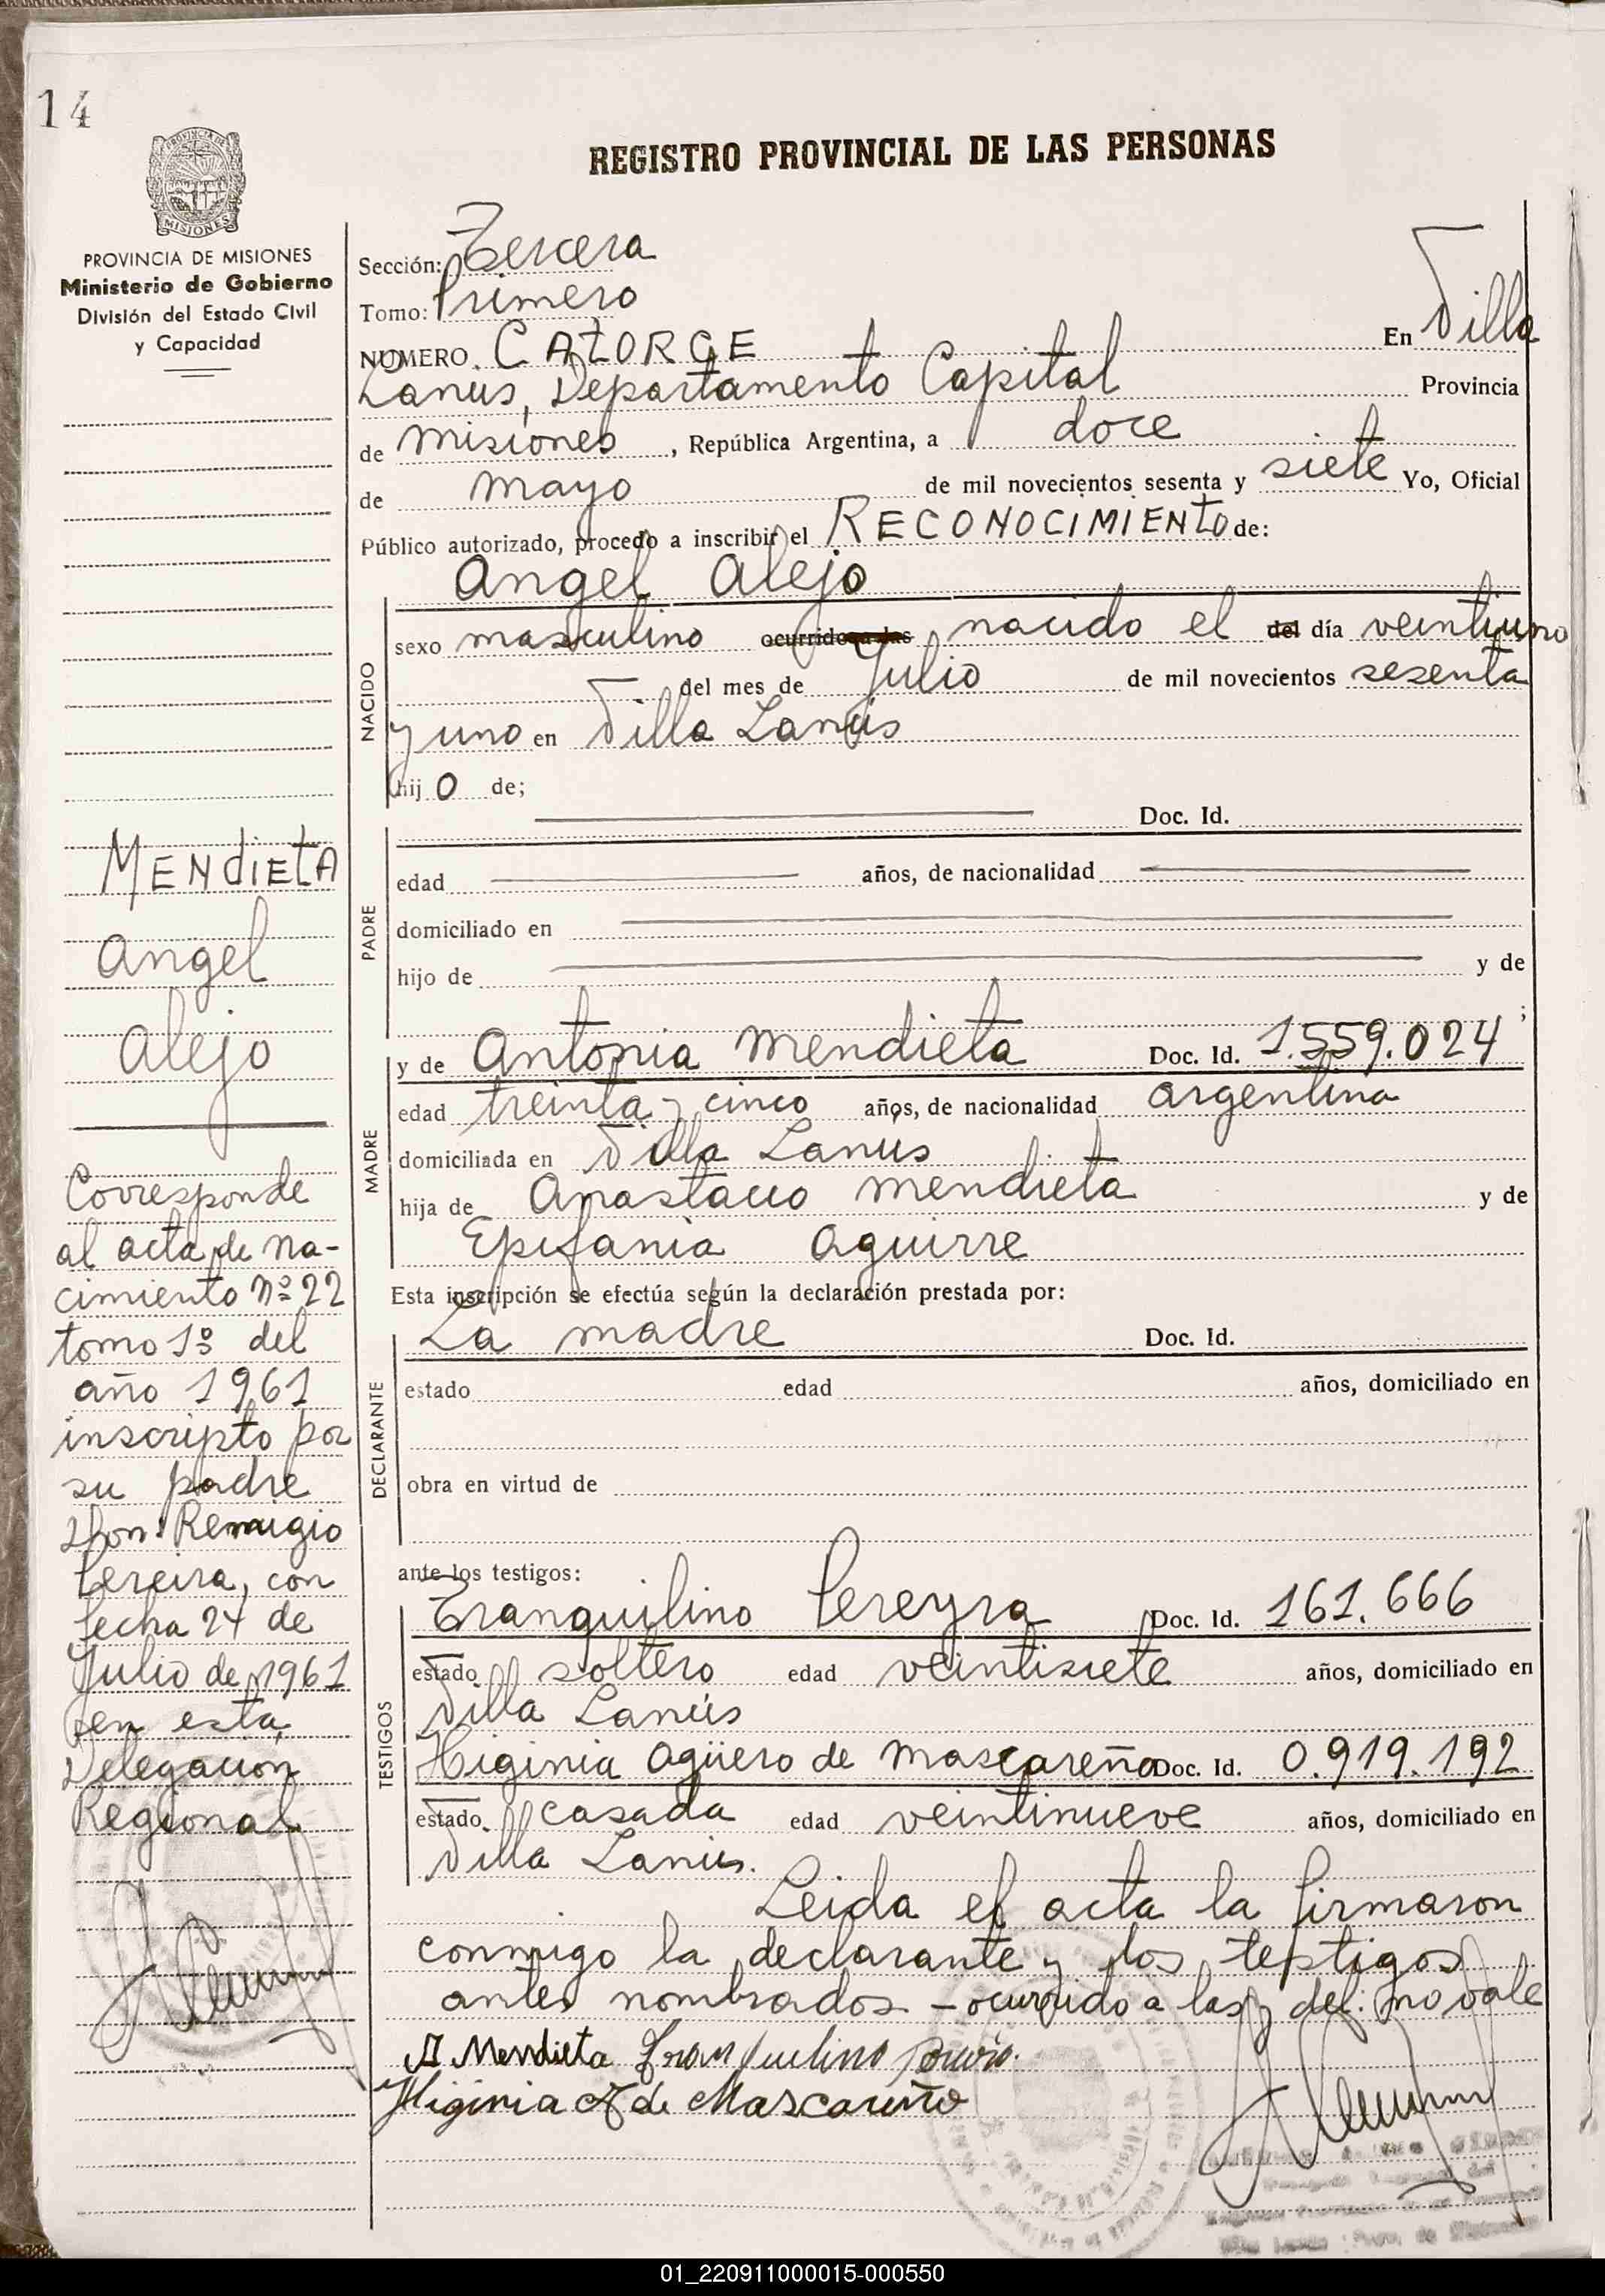 14
REGISTRO PROVINCIAL DE LAS PERSONAS
PROVINCIA DE MISIONES
MISIONES
PROVINCIA DE MISIONES
Ministerio de Gobierno
División del Estado Civil
y Capacidad
MENDIETA
Angel
Alejo
Corresponde
al acta de na-
cimiento Nº 22
tomo 1º del
año 1961
inscripto por
su padre
Don: Remigio
Pereira, con
fecha 24 de
Julio de 1961
en esta
Delegación
Regional
Sección: Tercera
Tomo: Primero
NUMERO CATORCE En Villa
Lanus, Departamento Capital Provincia
de Misiones, República Argentina, a doce
de mayo de mil novecientos sesenta y siete Yo, Oficial
Público autorizado, procedo a inscribir el RECONOCIMIENTO de:
Angel Alejo
NACIDO
sexo masculino ocurrido a las nacido el del día veintiuno
del mes de Julio de mil novecientos sesenta
y uno en Villa Lanús
hijo de;
Doc. Id.
PADRE
edad años, de nacionalidad
domiciliado en
hijo de y de
;
MADRE
y de Antonia Mendieta Doc. Id. 1.559.024
edad treinta y cinco años, de nacionalidad argentina
domiciliada en Villa Lanus
hija de Anastacio Mendieta y de
Epifania Aguirre
Esta inscripción se efectúa según la declaración prestada por:
DECLARANTE
La madre Doc. Id.
estado edad años, domiciliado en
obra en virtud de
ante los testigos:
TESTIGOS
Tranquilino Pereyra Doc. Id. 161.666
estado soltero edad veintisiete años, domiciliado en
Villa Lanús
Higinia Agüero de Mascareño Doc. Id. 0.919.192
estado casada edad veintinueve años, domiciliado en
Villa Lanús.
Leida el acta la firmaron
conmigo la declarante y los testigos
antes nombrados - ocurrido a las y del: no vale
A Mendieta Tranquilino
Higinia A de Mascareño
01_220911000015-000550